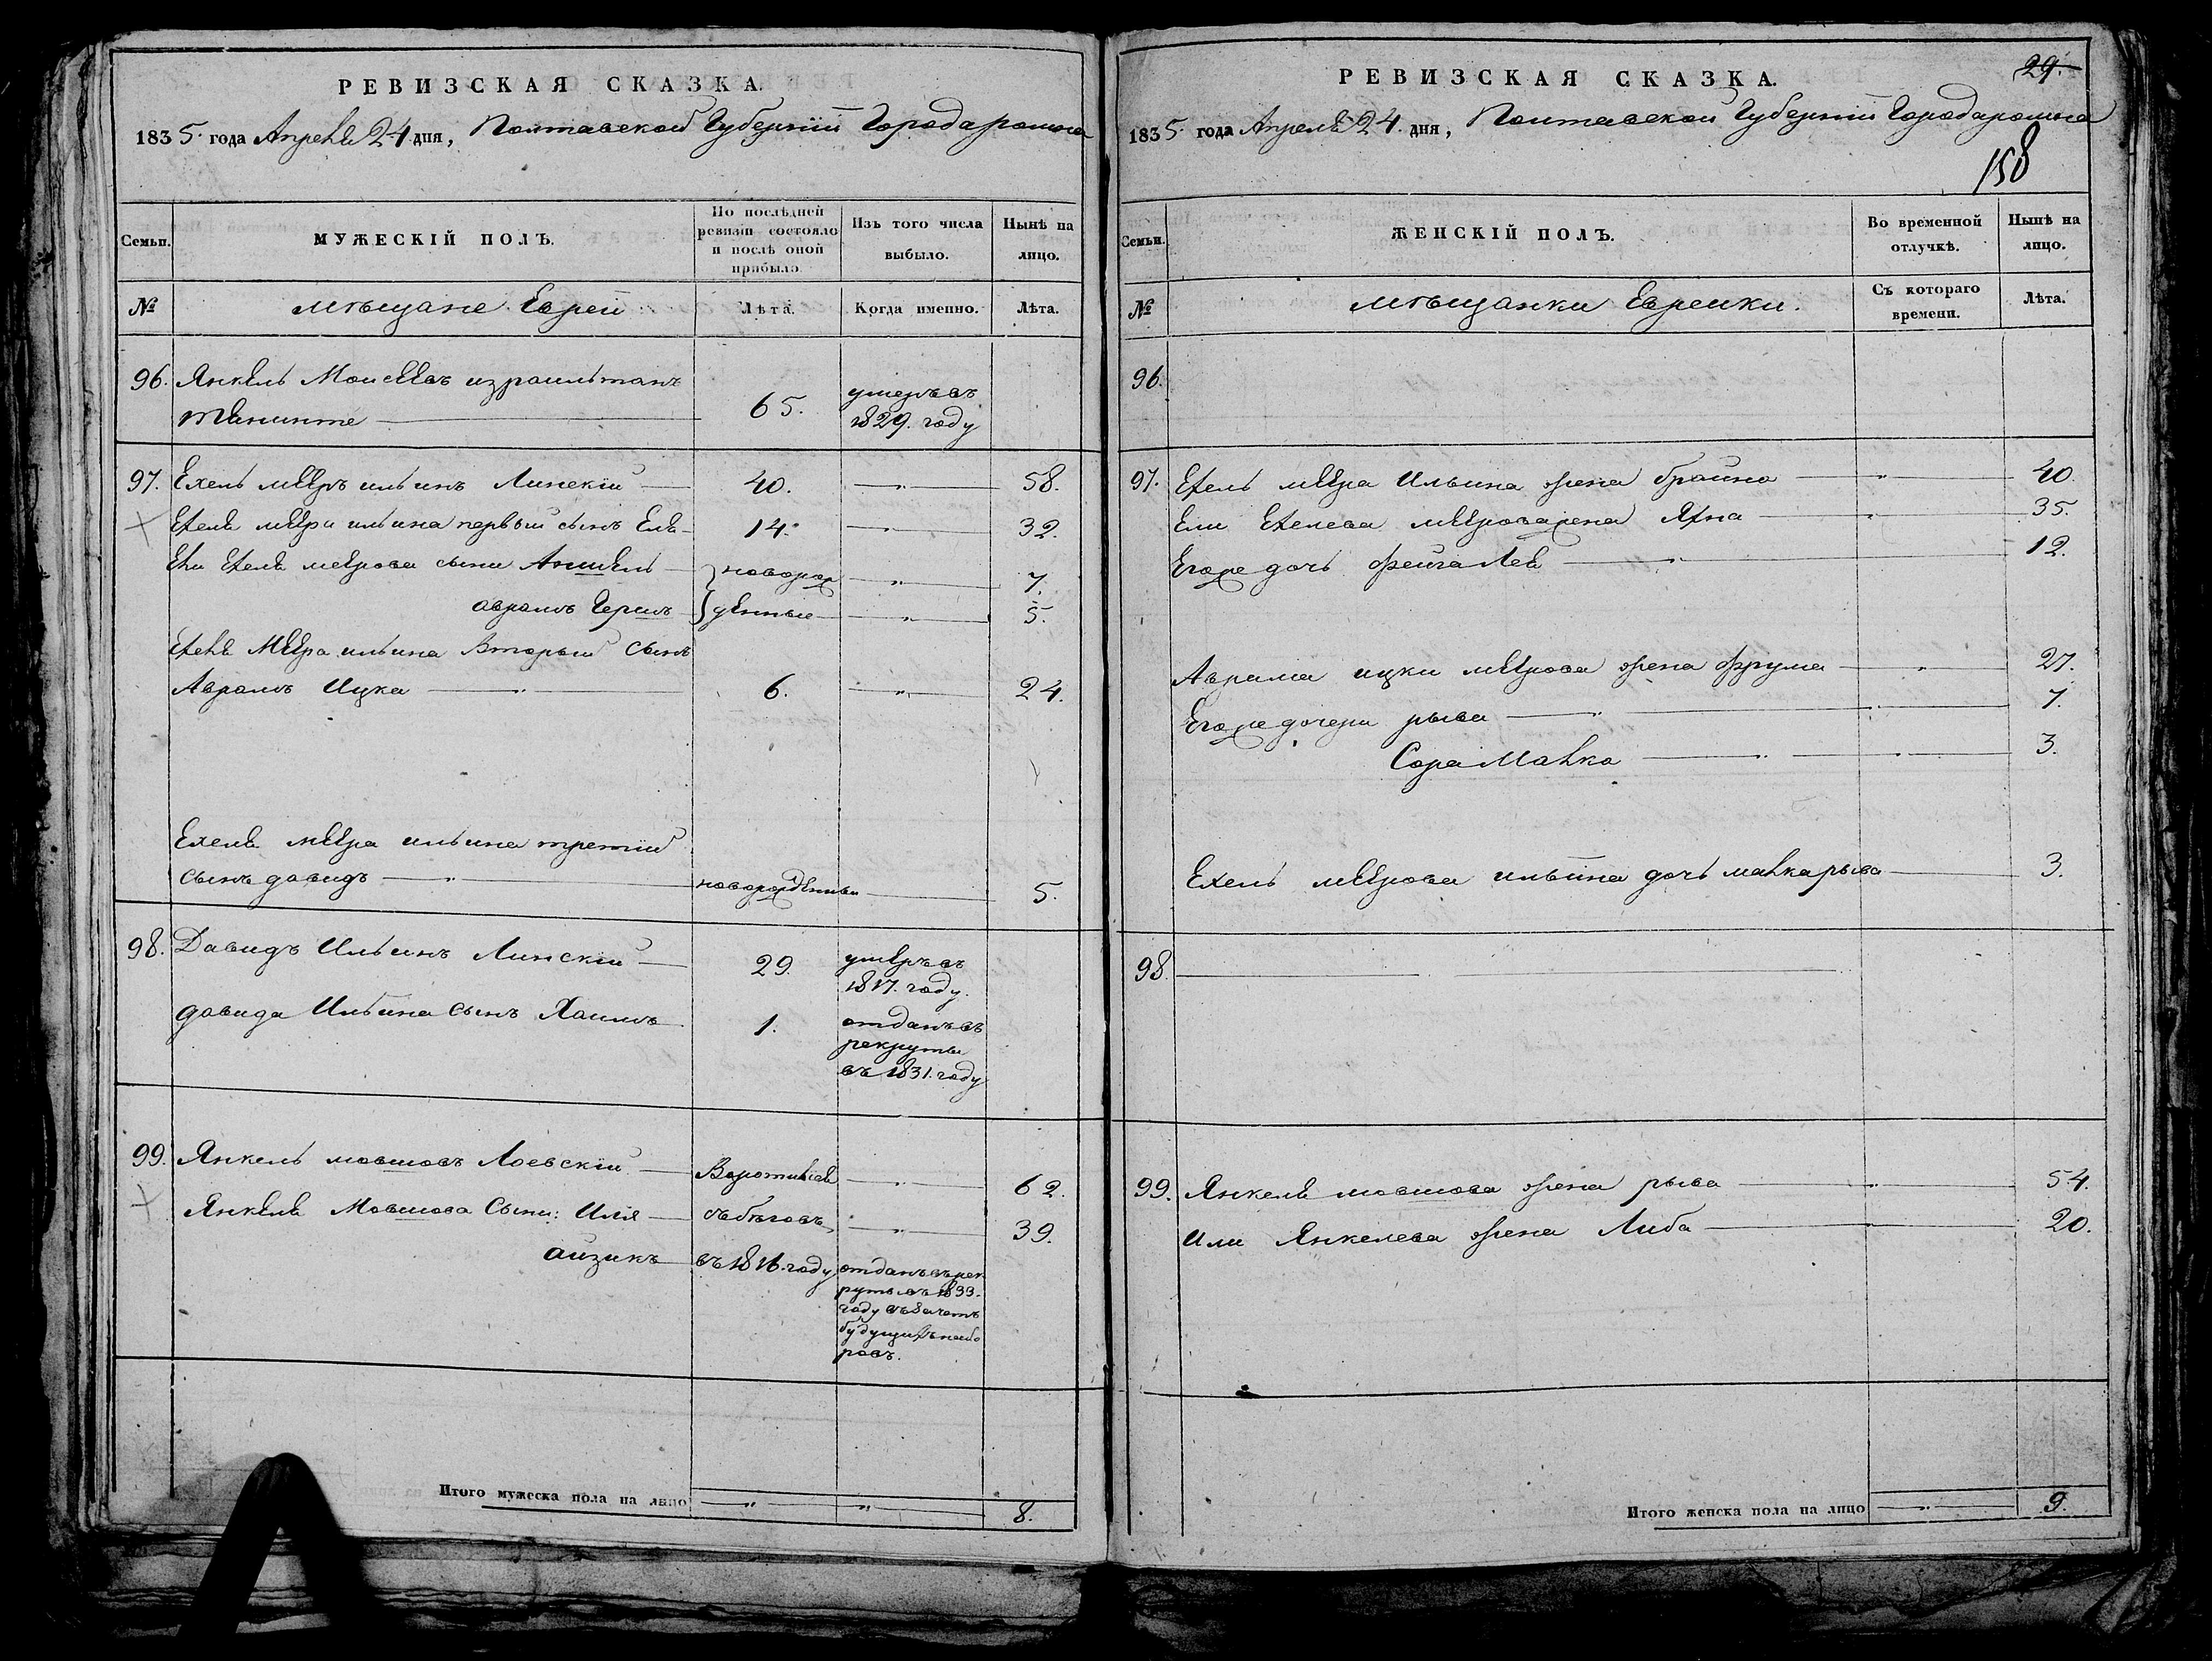 РЕВИЗСКАЯ СКАЗКА.
1835. года Апреля 24 дня, Полтавской Губернiи Города ромна
Семьи.
МУЖЕСКІЙ ПОЛЪ.
По послѣдней ревизіи состояло и послѣ оной прибыло
Изъ того числа выбыло.
Нынѣ на лицо.
№
мѣщане Евреи
Лѣта.
Когда именно.
Лѣта.
96. Янкель Моисеевъ израильтанъ
65. умеръ въ
1829. году
97. Ехель мееръ ильинъ Линскiй 40. „ 58.
Ехеля меера ильина первый сынъ Еля 14. „ 32.
Ели Ехеля меерова сыны Аншель новорож „ 7.
аврамъ Герцъ денные „ 5.
Ехеля Меера ильина Вторый Сынъ
Аврамъ Ицка „ 6. „ 24.
Ехеля меера ильина третiй
сынъ давидъ „ новорожденный 5.
98. Давидъ Ильинъ Линскiй 29. умеръ въ
1817. году.
давида Ильина сынъ Хаимъ 1. отданъ въ
рекруты
въ 1831. году
99. Янкель мовшовъ Лоевскiй Воротился „ 62.
Янкеля Мовшова Сыны: Иля съ бѣговъ „ 39.
айзикъ въ 1816. году отданъ въ рек
руты въ 1833.
году въ зачетъ
будущихъ набо
ровъ.
Итого мужеска пола на лицо „ „ 8.
29.
РЕВИЗСКАЯ СКАЗКА.
1835. года Апреля 24. дня, Полтавской Губернiи Города ромна
158
Семьи.
ЖЕНСКІЙ ПОЛЪ.
Во временной отлучкѣ.
Нынѣ на лицо.
№
мѣщанки Евреики.
Съ котораго времени.
Лѣта.
96.
97. Ехель меера Ильина жена брайна „ 40.
Ели Ехелева меерова жена Яхна „ 35.
Его же дочь фейга Лея „ 12.
Аврама ицки меерова жена фрума „ 27.
Его же дочери рыва „ „ 7.
Сора Малка „ „ 3.
Ехель меерова ильина дочь малка рыва 3.
98.
99. Янкеля мовшова жена рыва „ 54.
Или Янкелева жена Либа 20.
Итого женска пола на лицо „ 9.